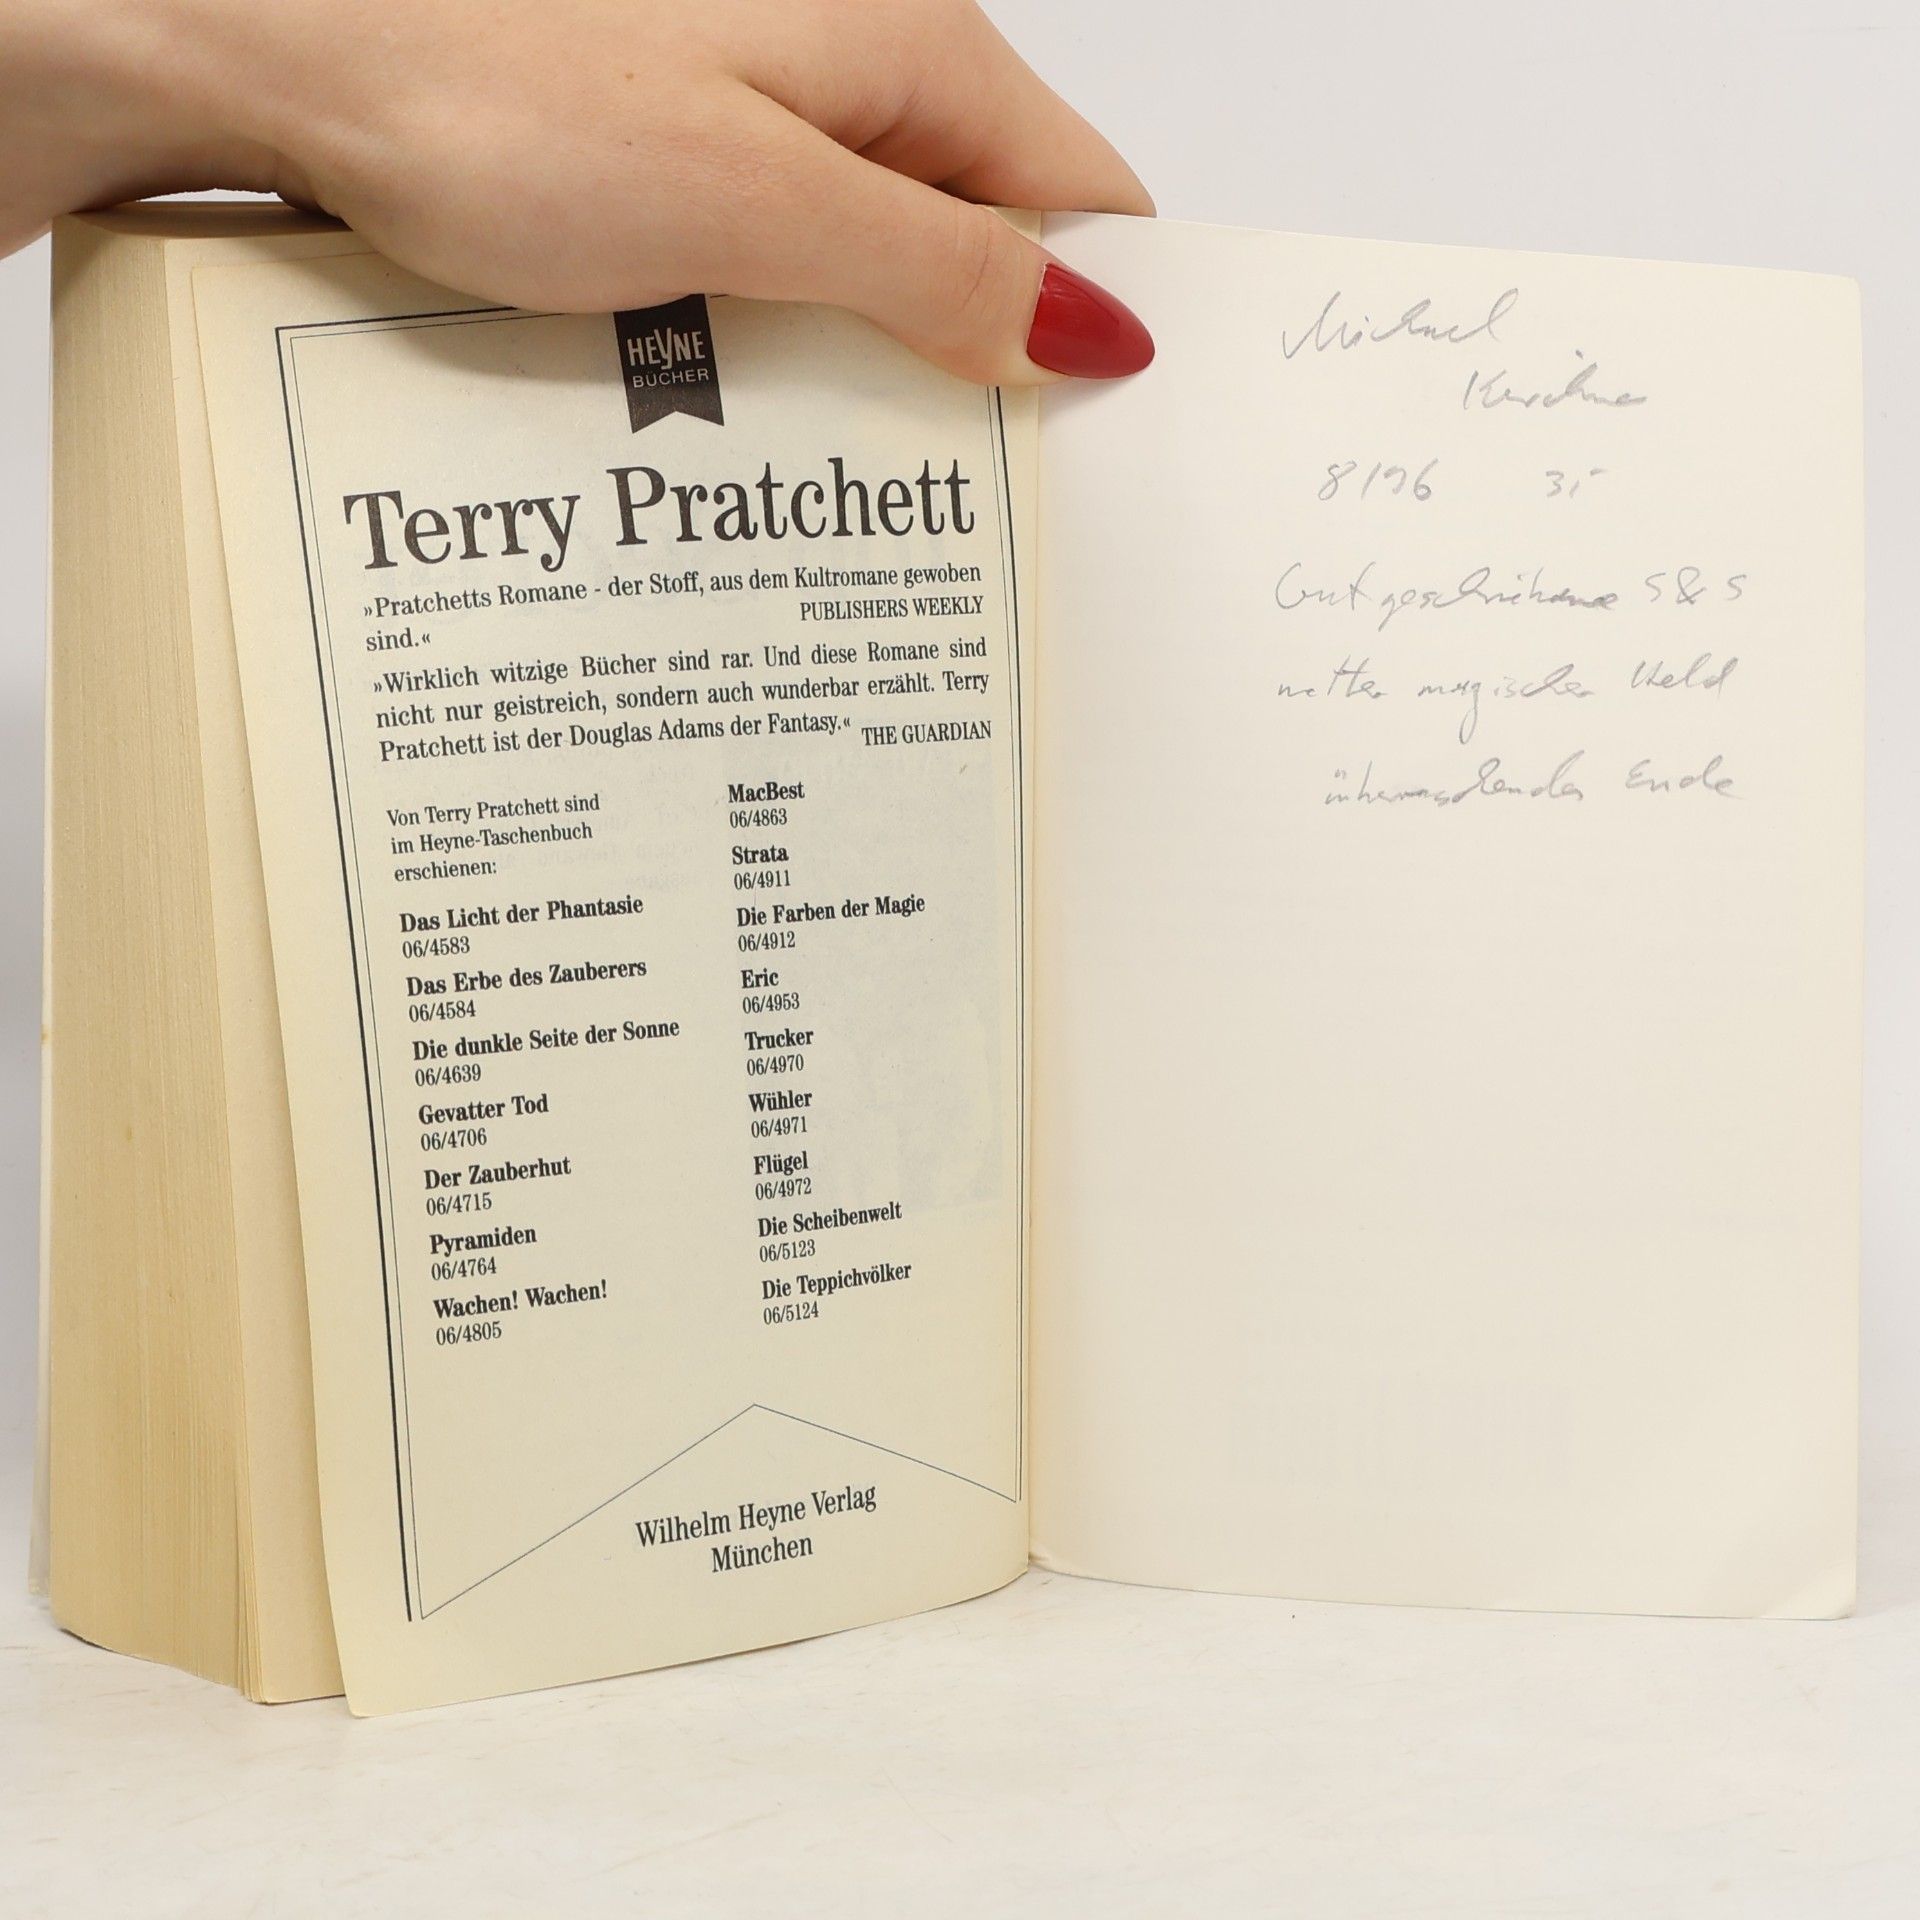 HEYNE
BÜCHER
Terry Pratchett
»Pratchetts Romane - der Stoff, aus dem Kultromane gewoben
sind.«
PUBLISHERS WEEKLY
»Wirklich witzige Bücher sind rar. Und diese Romane sind
nicht nur geistreich, sondern auch wunderbar erzählt. Terry
Pratchett ist der Douglas Adams der Fantasy.«
THE GUARDIAN
Von Terry Pratchett sind
im Heyne-Taschenbuch
erschienen:
Das Licht der Phantasie
06/4583
Das Erbe des Zauberers
06/4584
Die dunkle Seite der Sonne
06/4639
Gevatter Tod
06/4706
Der Zauberhut
06/4715
Pyramiden
06/4764
Wachen! Wachen!
06/4805
MacBest
06/4863
Strata
06/4911
Die Farben der Magie
06/4912
Eric
06/4953
Trucker
06/4970
Wühler
06/4971
Flügel
06/4972
Die Scheibenwelt
06/5123
Die Teppichvölker
06/5124
Wilhelm Heyne Verlag
München
Michael
8/96 3,-
Gut geschriebene S & S
netter magischer Held
überraschendes Ende